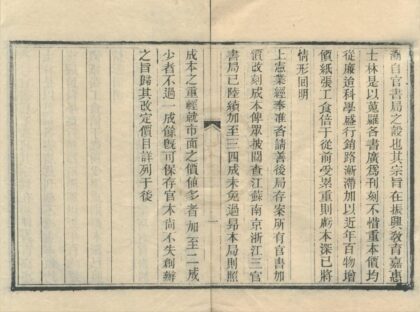 溯自官書局之設也其宗旨在振興敎育嘉惠
士林是以蒐羅各書廣爲刊刻不惜重本價均
從廉迨科學盛行銷路漸滯加以近年百物增
價紙張工食倍于從前受累重則虧本深已將
情形回明
上憲業經奉准咨請善後局存案所有官書加
價改刻成本俾眾披閱查江蘇南京浙江三官
書局已陸續加至三四成未免過昻本局則照
成本之重輕就市面之價値多者加至二成
少者不過一成餘旣可保存官本尚不失創辦
之旨歸其改定價目詳列于後